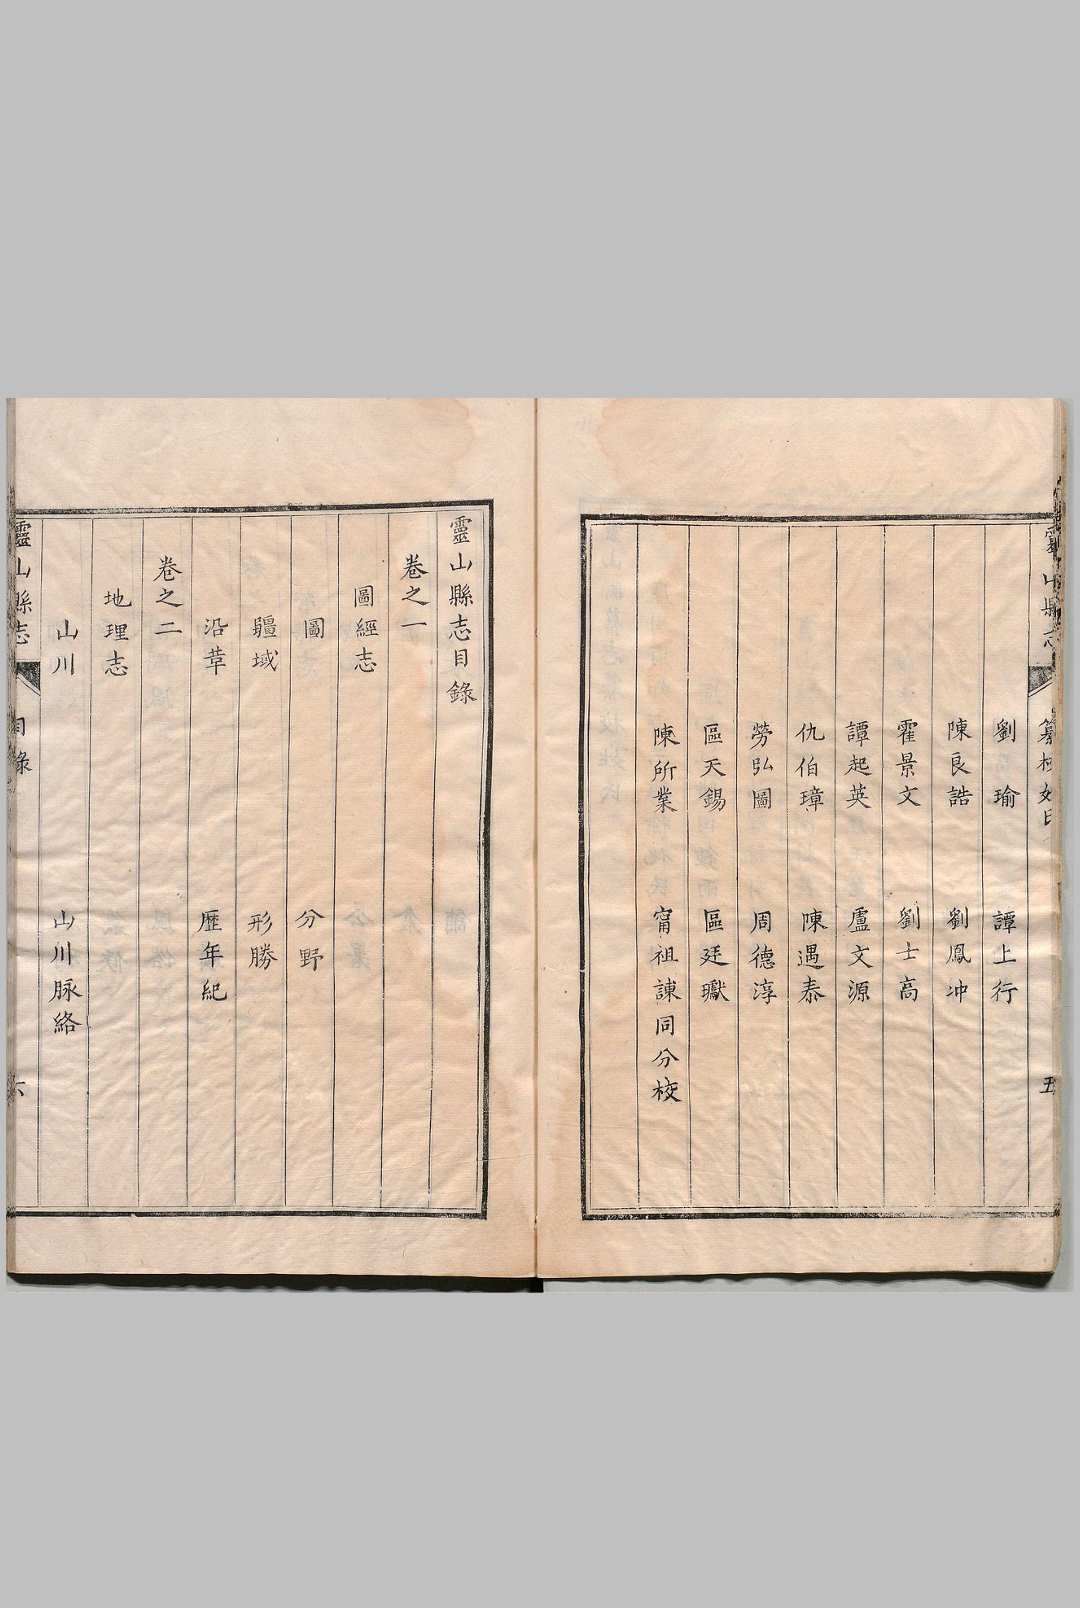 靈山縣志 纂校姓氏 五
劉瑜 譚上行
陳良誥 劉鳳冲
霍景文 劉士高
譚起英 盧文源
仇伯璋 陳遇泰
勞弘圖 周德淳
區天錫 區廷瓛
陳所業 甯祖諫同分校
靈山縣志目錄
卷之一
圖經志
圖 分野
疆域 形勝
沿革 歷年紀
卷之二
地理志
山川 山川脉絡
靈山縣志 目錄 六